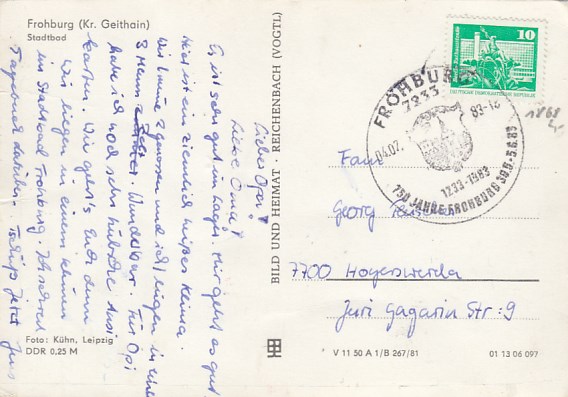 Frohburg (Kr. Geithain)
Stadtbad
Liebe Oma!
Lieber Opa!
Es ist sehr gut im Lager. Mir geht es gut
Hier ist ein ziemlich heißes Klima.
Wir
und ich liegen in einem
8 Mann Zelt. Wunderbar. Für Opi
habe ich noch sehr hübsche Ansi
karten. Wie geht's Euch denn
Wir liegen in einem kleinen
im Stadtbad Frohburg. Ich schreibe
Tagebuch darüber. Tschüß Jens
Foto: Kühn, Leipzig
DDR 0,25 M
BILD UND HEIMAT · REICHENBACH (VOGTL)
10
DEUTSCHE DEMOKRATISCHE REPUBLIK
FROHBURG
7233
04.07. 83-18
1233-1983
750 JAHRE FROHBURG 30.6.-5.6.83
Fam.
Georg
7700 Hoyerswerda
Juri Gagarin Str. 9
V 11 50 A 1/B 267/81
01 13 06 097